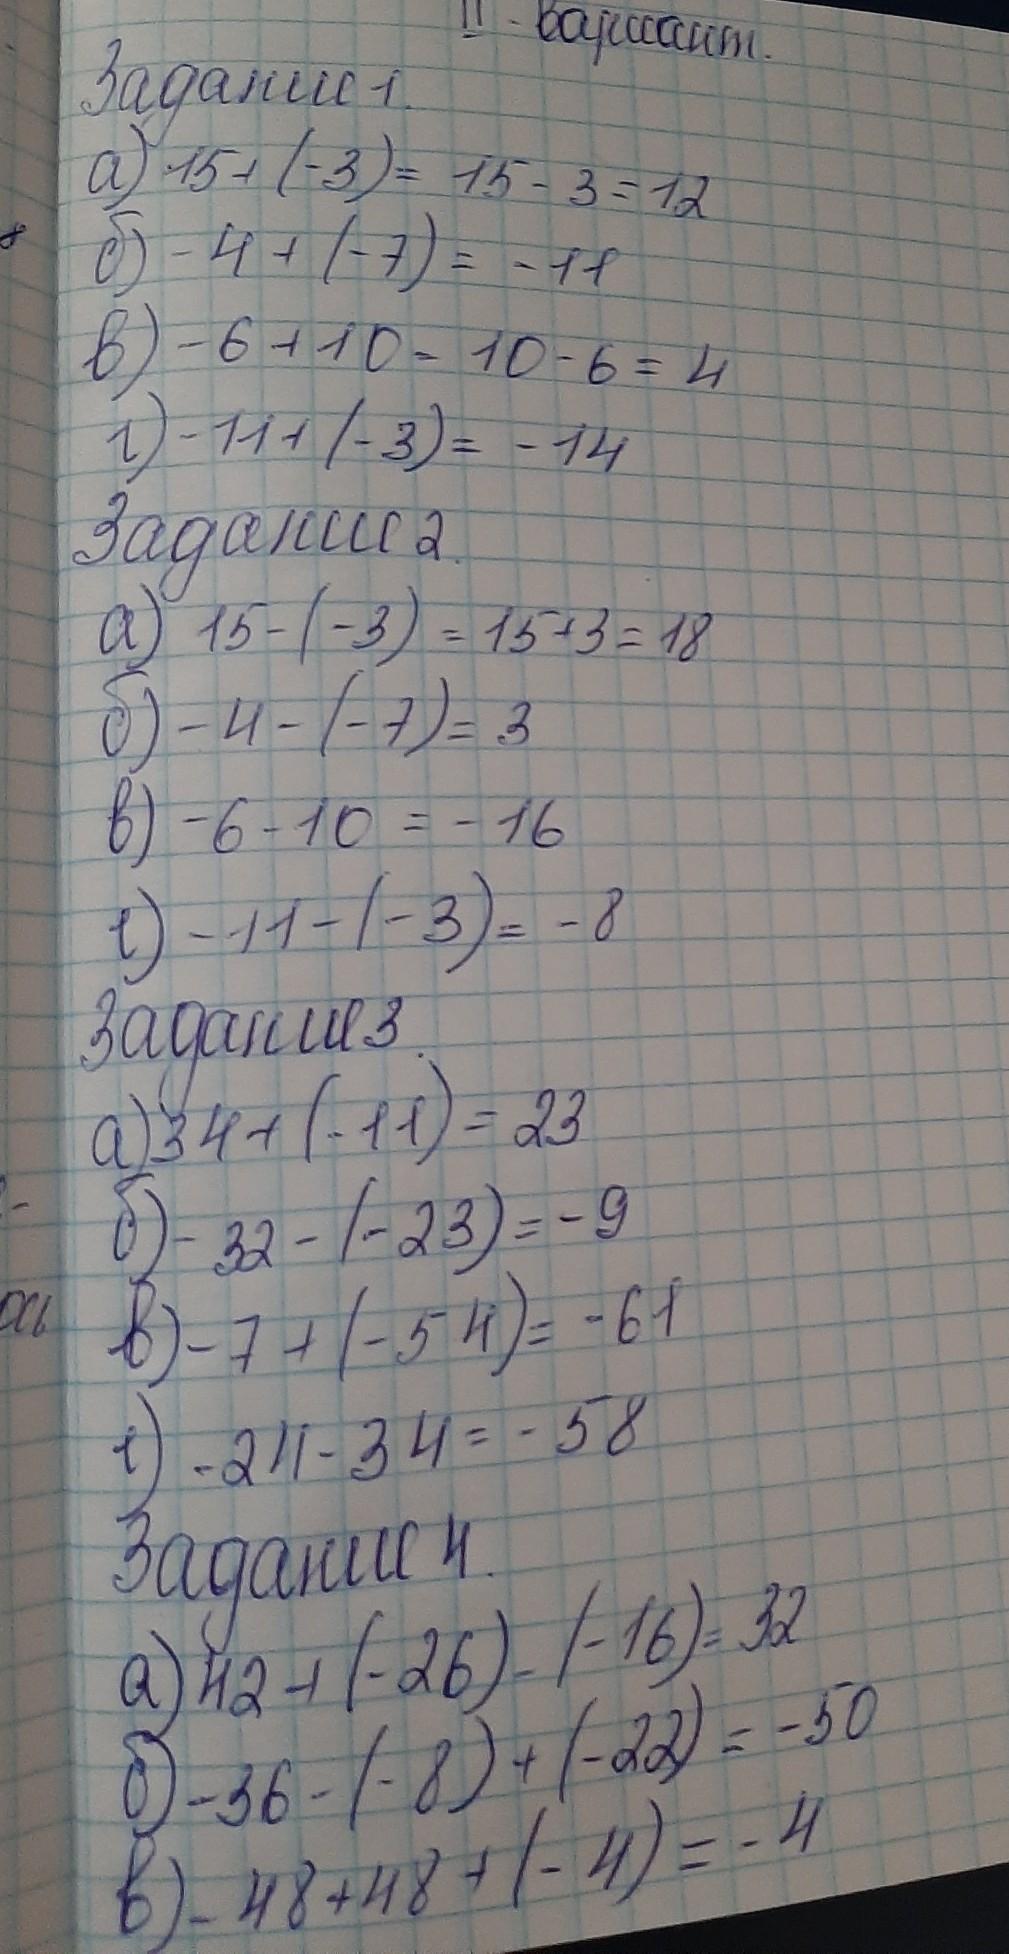 II - вариант.
Задание 1.
а) 15 + (-3) = 15 - 3 = 12
б) - 4 + (-7) = - 11
в) - 6 + 10 = 10 - 6 = 4
г) - 11 + (-3) = - 14
Задание 2.
а) 15 - (-3) = 15 + 3 = 18
б) - 4 - (-7) = 3
в) - 6 - 10 = - 16
г) - 11 - (-3) = - 8
Задание 3.
а) 34 + (-11) = 23
б) - 32 - (-23) = - 9
в) - 7 + (-54) = - 61
г) - 24 - 34 = - 58
Задание 4.
а) 42 + (-26) - (-16) = 32
б) - 36 - (-8) + (-22) = - 50
в) - 48 + 48 + (-4) = - 4